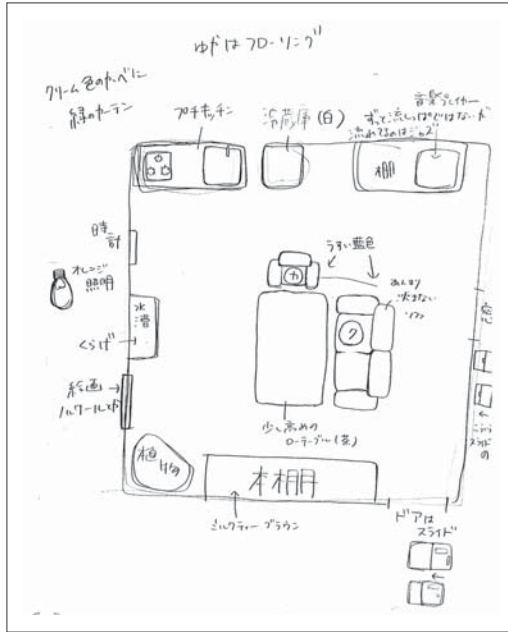 ゆかはフローリング
クリーム色のかべに
緑のカーテン
プチキッチン
冷蔵庫(白)
音楽プレイヤー
ずっと流しっぱではないが
流れてるのはジャズ
棚
時計
オレンジ
照明
水槽
くらげ
絵画
植物
うすい藍色
カ
ク
あんまり
沈まない
ソファ
窓
スライドの
少し高めの
ローテーブル(茶)
本棚
ミルクティーブラウン
ドアは
スライド